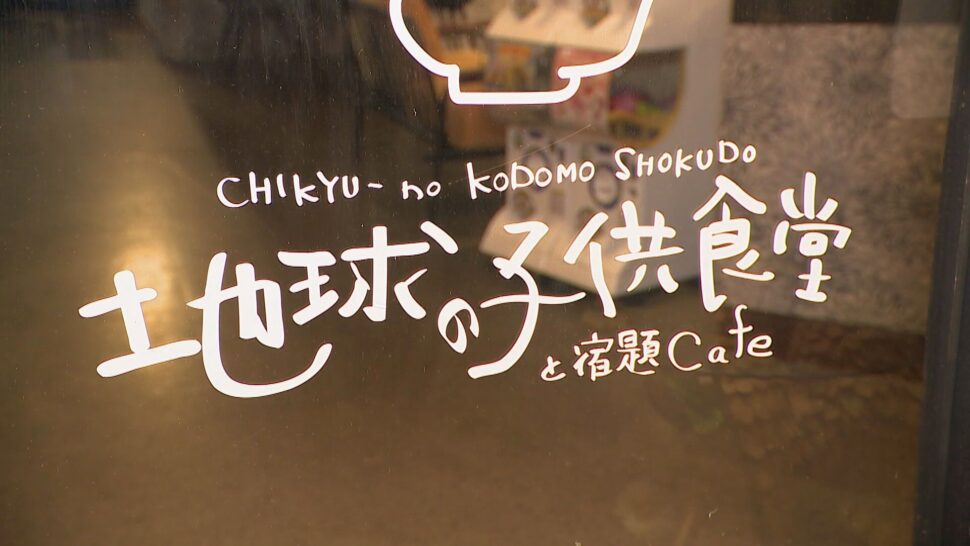 CHIKYU-no KODOMO SHOKUDO
地球の子供食堂
と宿題Cafe